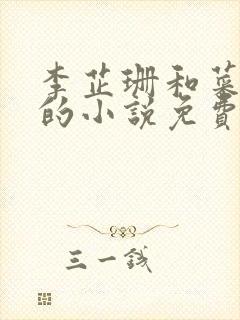 李芷珊和慕
的小說免費
三一錢